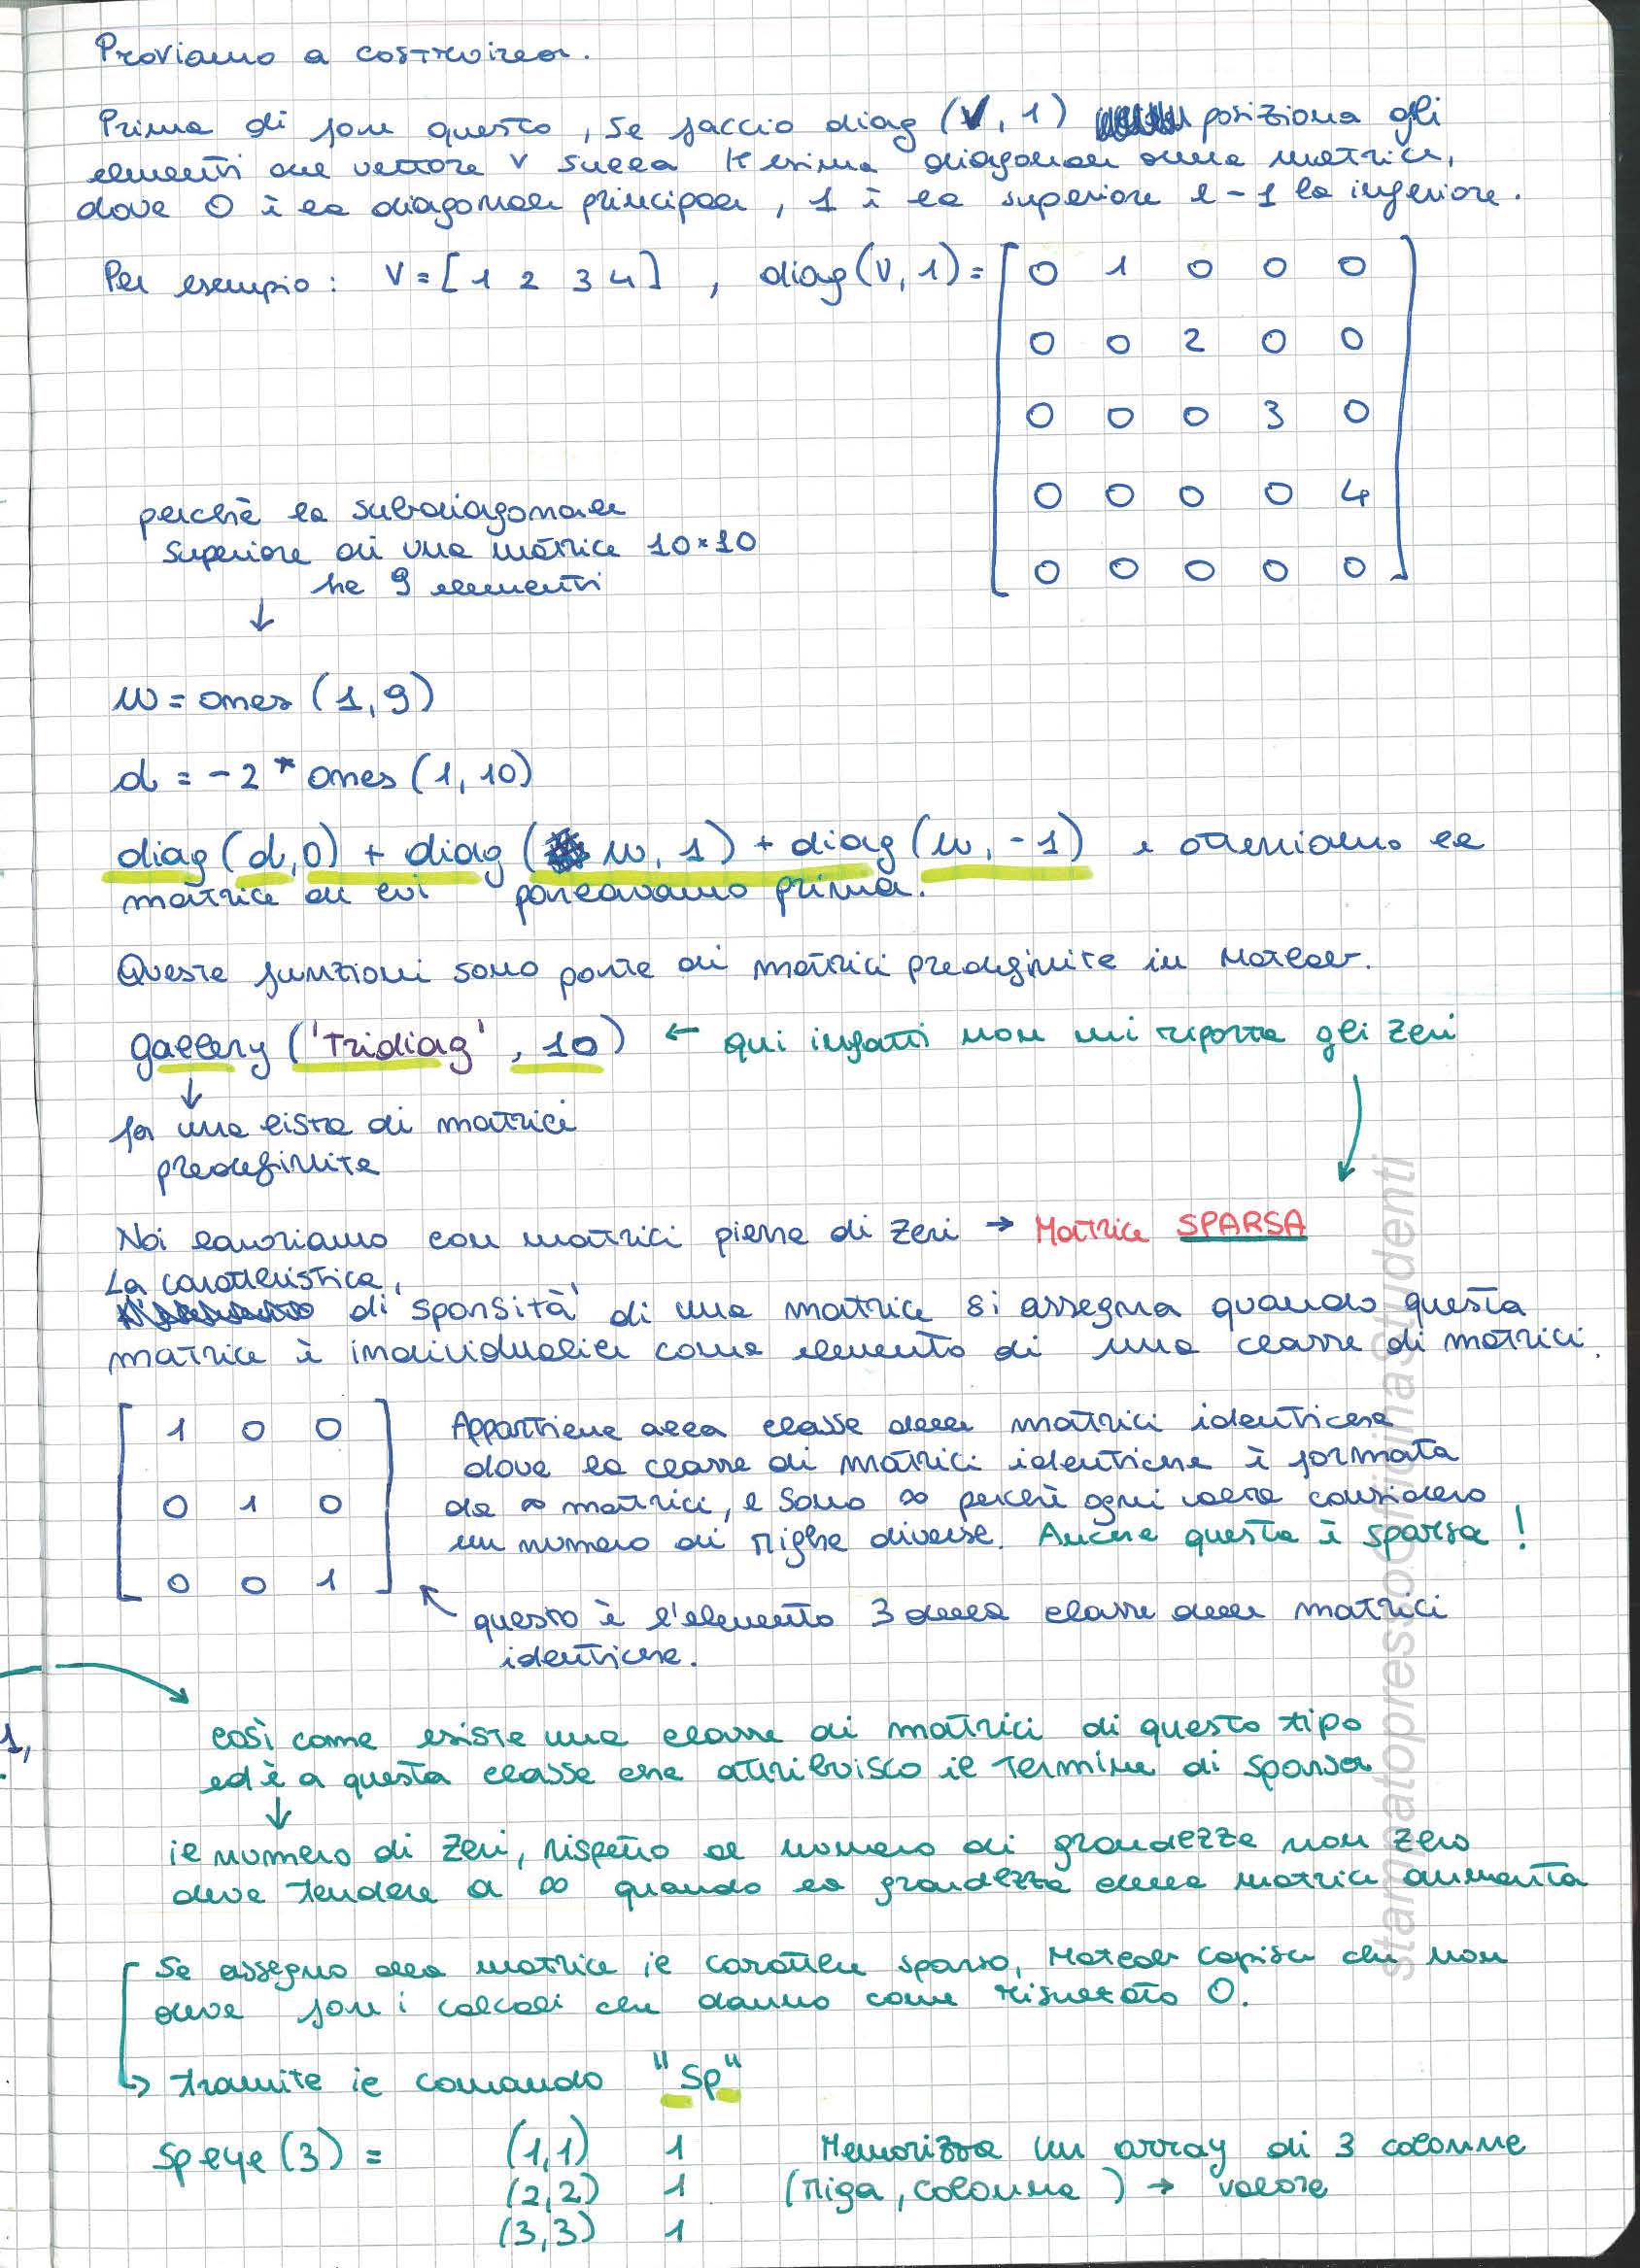 Proviamo a costruirla.
Prima di fare questo, se faccio diag (V, 1) posiziona gli
elementi del vettore v sulla K esima diagonale della matrice,
dove 0 è la diagonale principale, 1 è la superiore e -1 la inferiore.
Per esempio: V = [1 2 3 4] , diag(V, 1) = [ 0 1 0 0 0
0 0 2 0 0
0 0 0 3 0
0 0 0 0 4
0 0 0 0 0 ]
perchè la subdiagonale
superiore di una matrice 10×10
ha 9 elementi
↓
w = ones (1, 9)
d = -2 * ones (1, 10)
diag (d, 0) + diag (w, 1) + diag (w, -1) e otteniamo la
matrice di cui parlavamo prima.
Queste funzioni sono parte di matrici predefinite in Matlab.
gallery ('Tridiag', 10) ← qui infatti non mi riporta gli zeri
↓
fa una lista di matrici
predefinite
Noi lavoriamo con matrici piene di zeri → Matrice SPARSA
La caratteristica,
di sparsità di una matrice si assegna quando questa
matrice è individuabile come elemento di una classe di matrici.
[ 1 0 0
0 1 0
0 0 1 ]
Appartiene alla classe delle matrici identiche
dove la classe di matrici identiche è formata
da ∞ matrici, e sono ∞ perchè ogni volta considero
un numero di righe diverse. Anche questa è sparsa!
questo è l'elemento 3 della classe delle matrici
identiche.
1,
così come esiste una classe di matrici di questo tipo
ed è a questa classe che attribuisco il termine di sparsa
↓
il numero di zeri, rispetto al numero di grandezze non zero
deve tendere a ∞ quando la grandezza della matrice aumenta
Se assegno alla matrice il carattere sparso, Matlab capisce che non
deve fare i calcoli che danno come risultato 0.
→ tramite il comando "Sp"
Speye(3) = (1,1) 1 Memorizza un array di 3 colonne
(2,2) 1 (riga, colonna) → valore
(3,3) 1
stampatopressoOfficinaStudenti